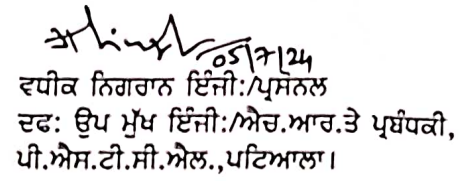 05/7/24
ਵਧੀਕ ਨਿਗਰਾਨ ਇੰਜੀ:/ਪ੍ਰਸੋਨਲ
ਦਫ: ਉਪ ਮੁੱਖ ਇੰਜੀ:/ਐਚ.ਆਰ.ਤੇ ਪ੍ਰਬੰਧਕੀ,
ਪੀ.ਐਸ.ਟੀ.ਸੀ.ਐਲ.,ਪਟਿਆਲਾ।